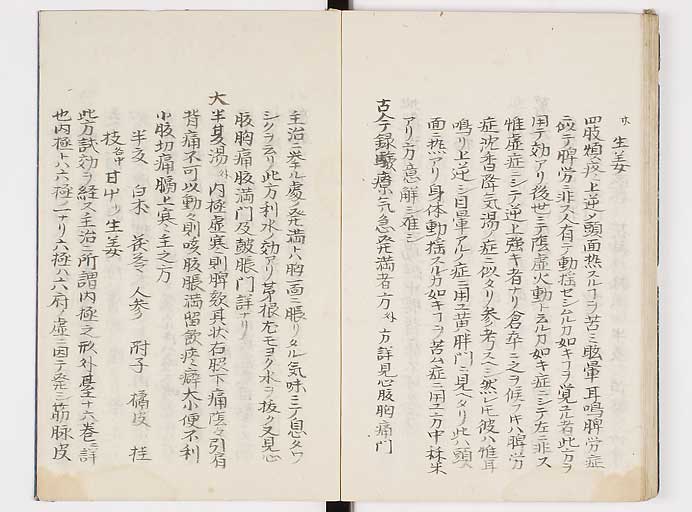 生姜
四肢煩疼上逆メ頭面熱スルヿヲ苦ミ眩暈耳鳴脾労症
ニ似テ脾労ニ非ス人有テ動揺セシムルカ如キヿヲ覚ユ者此方ヲ
用テ効アリ後世ニテ陰虚火動ト云ルカ如キ症ニシテ左ニ非ス
惟虚症ニシテ逆上強キ者ナリ倉卒ニ之ヲ候フ片ハ脾労
症沈香降気湯ノ症ニ似タリ参考スヘシ然レ𪜈彼ハ惟耳
鳴リ上逆シ目暈アルノ症ニ用ユ黄胖門ニ見ヘタリ此ハ頭
面ニ熱アリ身体動揺スルカ如キヿヲ苦ム症ニ用ユ方中秫米
アリ方意解シ難シ
古今録驗療気急発満者方 方詳見心腹胸痛門
主治ニ挙ル處ノ発満ハ胸一面ニ脹リタル気味ニテ息タワ
シクヲ云リ此方利水ノ効アリ茅根尤モヨク水ヲ抜ク又見心
腹胸痛腹満門及皷脹門詳ナリ
大半夏湯 内極虚寒則脾欬其状右脇下痛陰々引肩
背痛不可以動々則咳腹脹満留飲痰癖大小便不利
小腹切痛膈上寒ヲ主之方
半夏 白朮 茯苓 人参 附子 橘皮 桂
枝 甘中 生姜
此方試効ヲ経ス主治ニ所謂内極之形外臺十六巻ニ詳
也内極トハ六極ノ一ナリ六極ハ六府ノ虚ニ因テ発シ筋脉皮